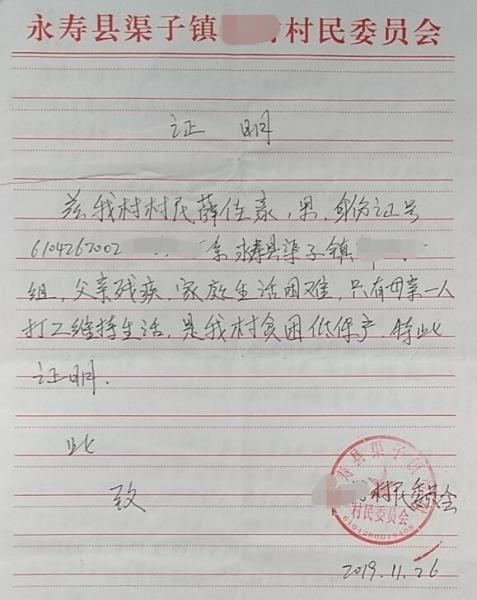 永寿县渠子镇 村民委员会
证 明
兹我村村民薛佳豪，男，身份证号
6104262002 系永寿县渠子镇
组，父亲残疾，家庭生活困难，只有母亲一人
打工维持生活，是我村贫困低保户，特此
证明.
此
致
村民委员会
寿县渠子镇
村民委员会
2019.11.26